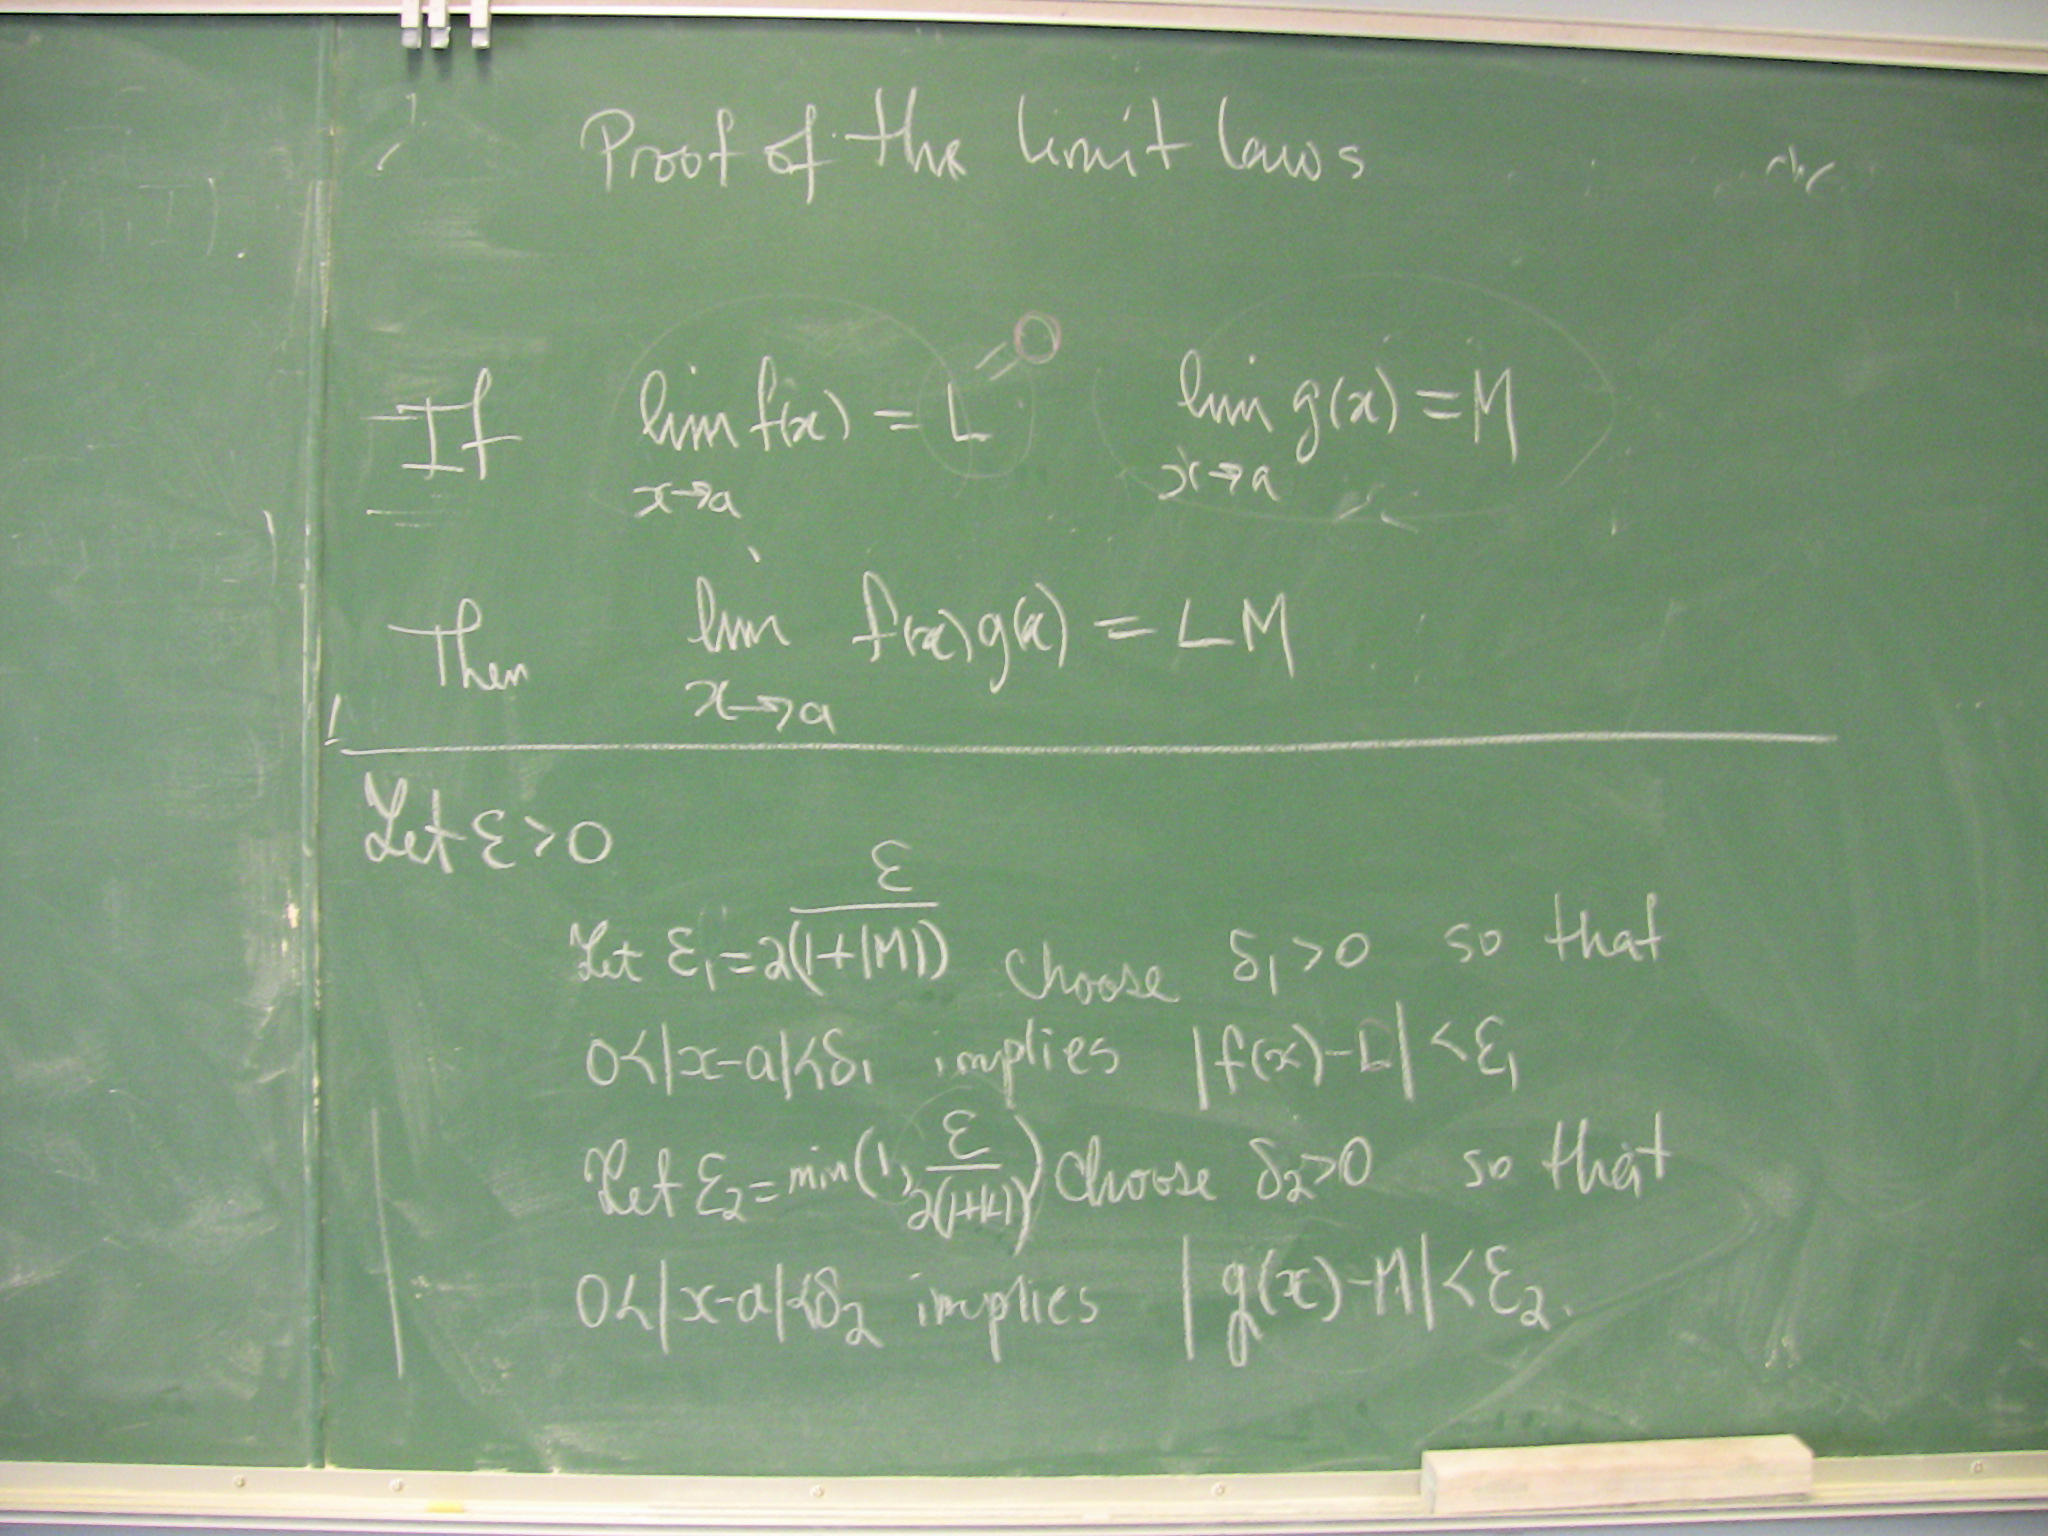 Proof of the limit laws
If lim f(x) = L = 0 lim g(x) = M
x→a x→a
Then lim f(x)g(x) = LM
x→a
Let ε>0
Let ε₁ = ε/2(1+|M|) choose δ₁>0 so that
0<|x-a|<δ₁ implies |f(x)-L|<ε₁
Let ε₂ = min(1, ε/2(1+|L|)) choose δ₂>0 so that
0<|x-a|<δ₂ implies |g(x)-M|<ε₂.